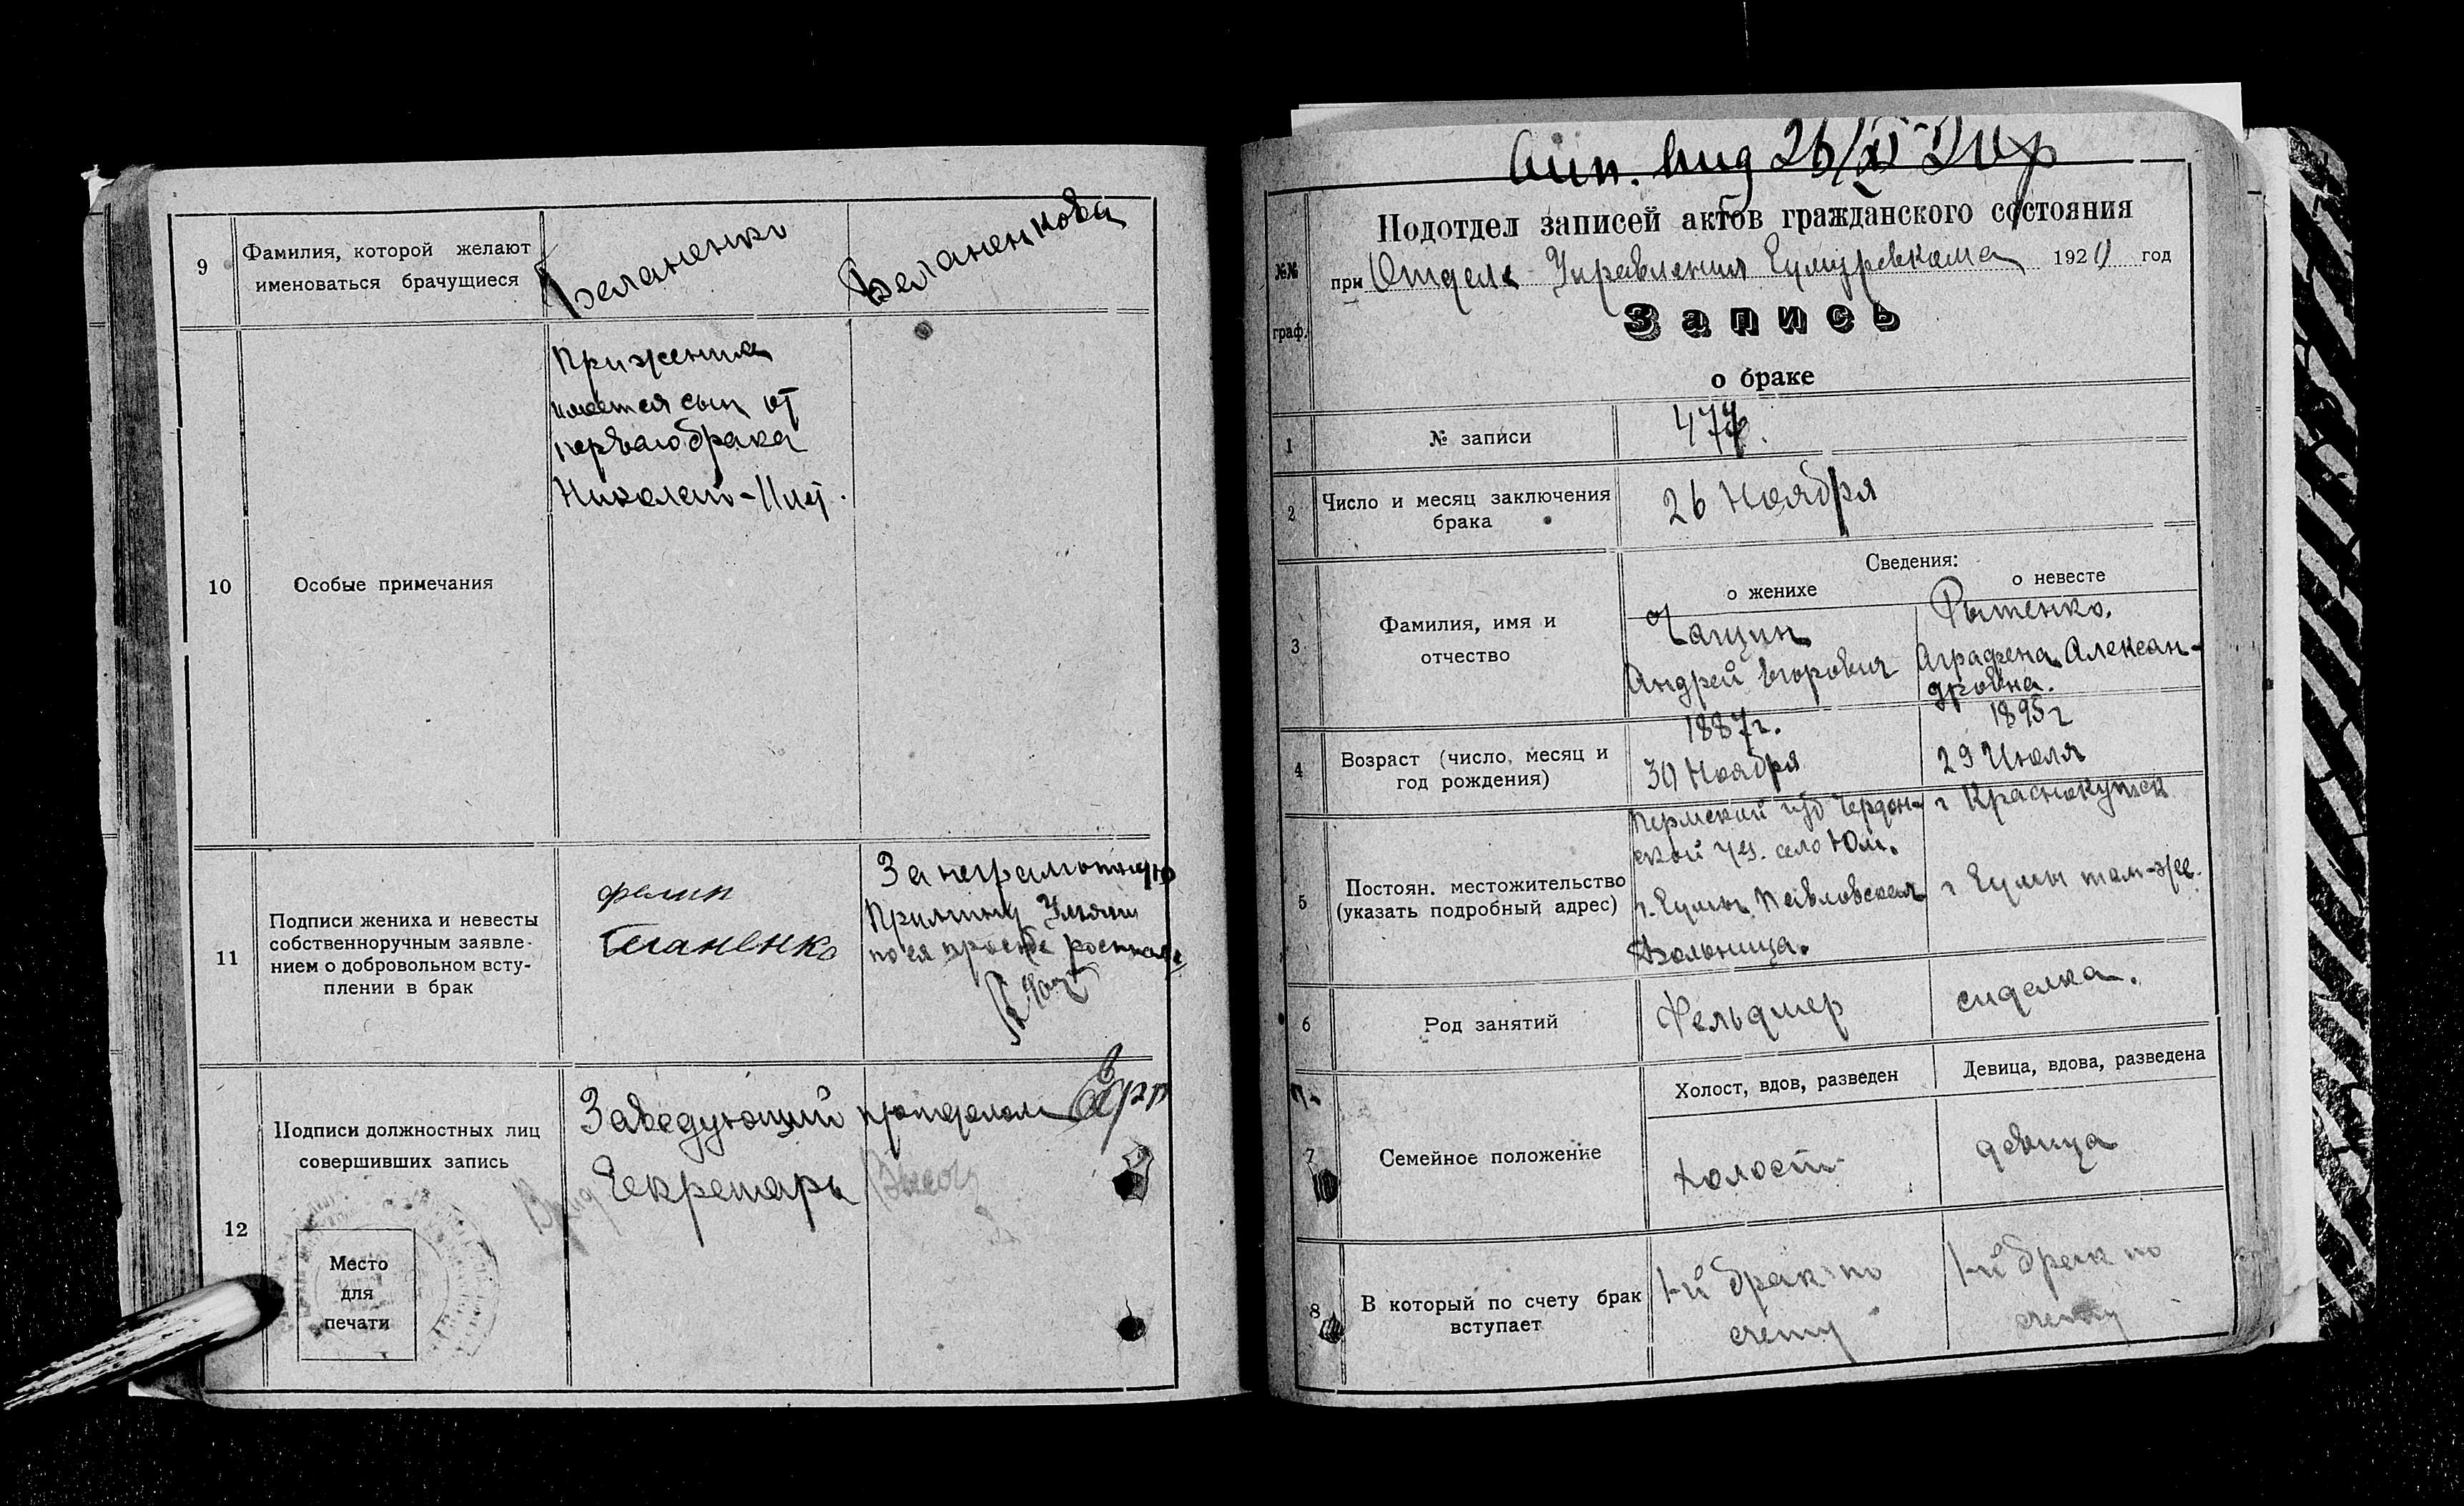 9
Фамилия, которой желают
именоваться брачущиеся
Беланенко
Беланенкова
10
Особые примечания
При жених
имеется сын от
перваго брака
Николай - 11 лет.
11
Подписи жениха и невесты
собственноручным заявле-
нием о добровольном всту-
плении в брак
Беланенко
За неграмотную
по ея просьбе
12
Подписи должностных лиц
совершивших запись
Заведующий подотделом
Врид Секретарь
Место
для
печати
26/XI 20 г
№№
граф.
Подотдел записей актов гражданского состояния
при Отделе Управления Гумуревкома 1920 год
Запись
о браке
1
№ записи
477.
2
Число и месяц заключения
брака
26 Ноября
Сведения:
о женихе
о невесте
3
Фамилия, имя и
отчество
Чащин
Андрей Егорович
Рытенко.
Аграфена Алексан-
дровна.
4
Возраст (число, месяц и
год рождения)
1887 г.
30 Ноября
1895 г
29 Июля
5
Постоян. местожительство
(указать подробный адрес)
Пермской губ Чердын-
ской уез. село Юм.
Павловская
Больница.
г Краснокутск
там-же.
6
Род занятий
Фельдшер
сиделка.
7
Семейное положение
Холост, вдов, разведен
Девица, вдова, разведена
холост
девица
8
В который по счету брак
вступает
1-й брак по
счету
1-й брак по
счету